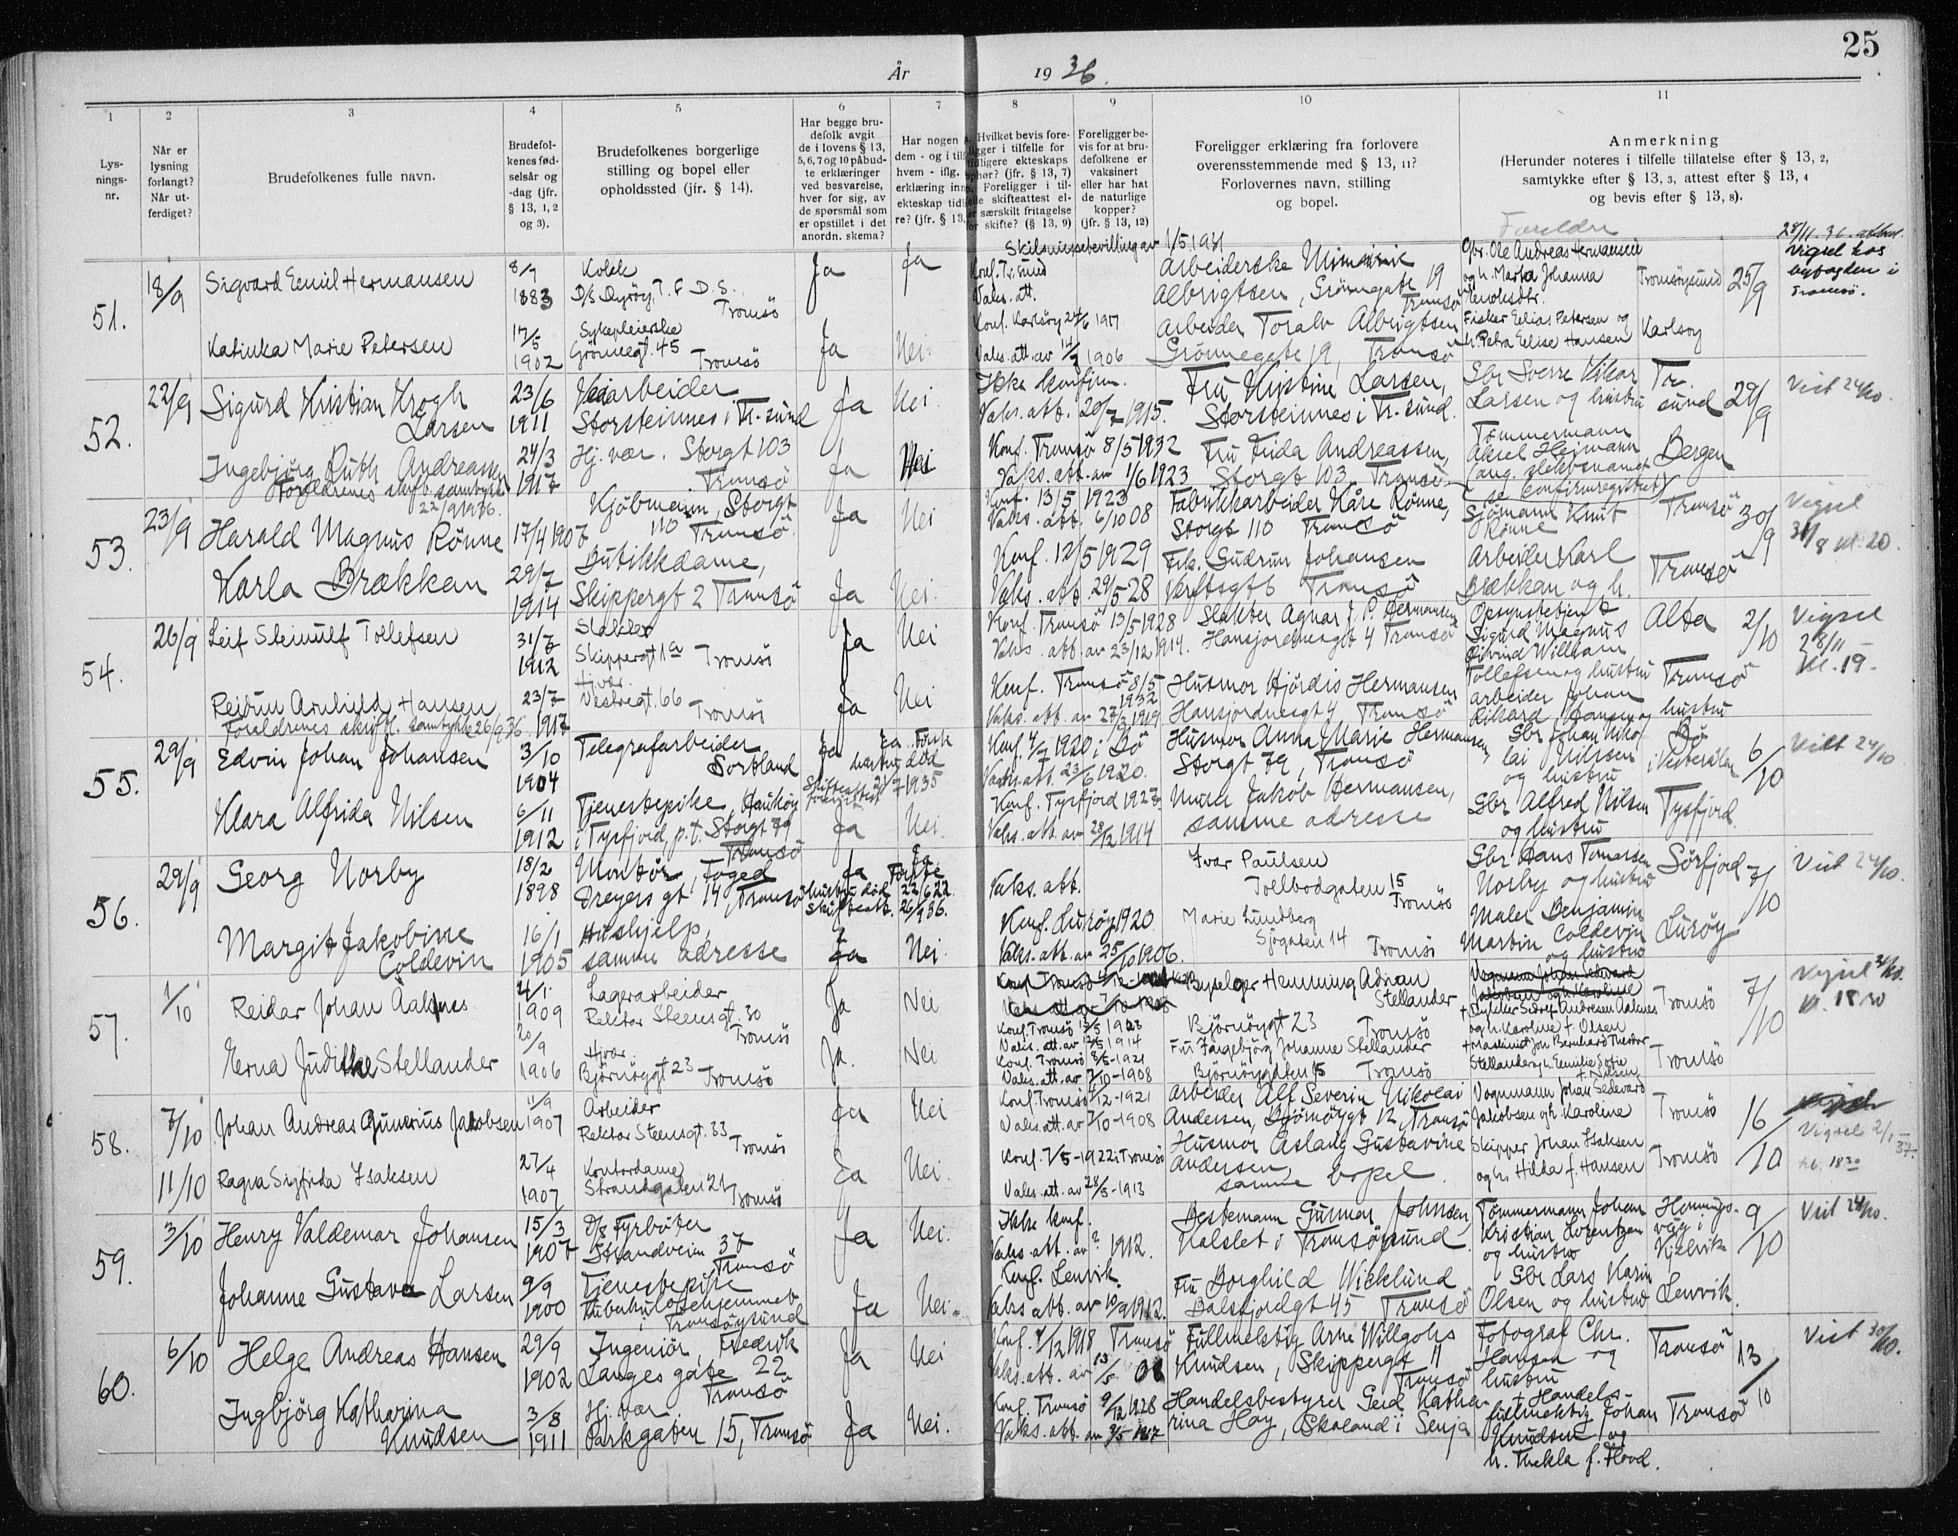 25
År 1936.
1 2 3 4 5 6 7 8 9 10 11
Lys-
nings-
nr.
Når er
lysning
forlangt?
Når ut-
ferdiget?
Brudefolkenes fulle navn.
Brudefol-
kenes fød-
selsår og
-dag (jfr.
§ 13, 1, 2
og 3).
Brudefolkenes borgerlige
stilling og bopel eller
opholdssted (jfr. § 14).
Har begge bru-
defolk avgit
de i lovens § 13,
5, 6, 7 og 10 påbud-
te erklæringer
ved besvarelse,
hver for sig, av
de spørsmål som
er opstillet i det
anordn. skema?
Har nogen
dem - og i til
hvem - iflg.
erklæring inn
ekteskap tid
re? (jfr. § 13,
Hvilket bevis fore-
ligger i tilfelle for
tidligere ekteskaps
ophør? (jfr. § 13, 7)
Foreligger i til-
skifteattest el-
særskilt fritagelse
for skifte? (§ 13, 9)
Foreligger be-
vis for at bru-
defolkene er
vaksinert
eller har hat
de naturlige
kopper?
(jfr. § 13, 12)
Foreligger erklæring fra forlovere
overensstemmende med § 13, 11?
Forlovernes navn, stilling
og bopel.
Anmerkning
(Herunder noteres i tilfelle tillatelse efter § 13, 2,
samtykke efter § 13, 3, attest efter § 13, 4
og bevis efter § 13, 8).
Foreldre
51.
18/9
Sigvard Emil Hermansen
8/7
1883
Kokk
D/S Dyröy, T. F. D. S.
Tromsö
Ja
Ja
Skilsmissebevilling av 1/5 1931
Konf. Tr.sund
Vaks. att.
Arbeiderske
Albrigtsen, Grönnegate 19
Tromsö
Gbr. Ole Andreas Hermansen
og h. Marta Johanna
Tromsöysund
25/9
Vigsel hos
byfogden i
Tromsö.
Katinka Marie Petersen
17/5
1902
Sykepleierske
Grönnegt. 45
Tromsö
Ja
Nei
Konf. Karlsöy 24/6 1917
Vaks. att. av 14/7 1906
Arbeider Toralv Albrigtsen
Grönnegate 19, Tromsö
Fisker Elias Petersen og
h. Petra Elise Hansen
Karlsöy
52.
22/9
Sigurd Kristian Krogh
Larsen
23/6
1911
Veiarbeider
Storsteinnes i Tr.sund
Ja
Nei
Ikke konfirm.
Vaks. att. 20/7 1915.
Fru Kristine Larsen,
Storsteinnes i Tr.sund.
Gbr Sverre Hikar
Larsen og hustru
Tr.
sund
29/9
Viet 24/10.
Ingebjörg Ruth Andreassen
Foreldrenes skift. samtykke
22/9 1936.
24/3
1917
Hj. vær. Storgt 103
Tromsö
Ja
Nei
Konf. Tromsö 8/5 1932
Vaks. att. av 1/6 1923
Fru Frida Andreassen,
Storgt 103 Tromsö
Tömmermann
Aksel Heimann
(ang. slektsnavnet
se konfirmregistret)
Bergen
53.
23/9
Harald Magnus Rönne
17/4 1907
Kjöbmann, Storgt
110 Tromsö
Ja
Nei
Konf. 13/5 1923
Vaks. att. 6/10 08
Fabrikkarbeider Kåre Rönne,
Storgt 110 Tromsö
Sjömann Knut
Rönne
Tromsö
30/9
Vigsel
kl. 20.
Karla Brækkan
29/7
1914
Butikkdame,
Skippergt 2 Tromsö
Ja
Nei
Konf. 12/5 1929
Vaks. att. 29/5-28
Frk. Gudrun Johansen
Verftsgt 6 Tromsö
Arbeider Karl
Brækkan og h.
Tromsö
54.
26/9
Leif Steinulf Tollefsen
31/7
1912
Slakter
Skippergt 1a
Tromsö
Ja
Nei
Konf. Tromsö 13/5 1928
Vaks. att. av 23/12 1914.
Slakter Agnar J. P. Hermansen
Hansjordnesgt 4 Tromsö
Opsynsbetjent
Sigurd Magnus
Eivind William
Tollefsen og hustru
Alta
2/10
Vigsel
28/11
kl. 19.
Reidun Arnhild Hansen
Foreldrenes skiftl. samtykke 26/9 36.
23/7
1917
Hj. vær.
Vestregt. 66
Tromsö
Ja
Nei
Konf. Tromsö 8/5
1932
Vaks. att. av 27/3 1919
Husmor Hjördis Hermansen
Hansjordnesgt 4 Tromsö
Arbeider Johan
Rikard Hansen og
hustru
Tromsö
55.
29/9
Edvin Johan Johansen
3/10
1904
Telegrafarbeider
Sortland
Ja
Ja. Förste
hustru död
1935
Konf. 4/7 1920 i Bö
Vaks. att. 23/6 1920.
Husmor Anna Marie Hermansen,
Storgt 79, Tromsö
Gbr Johan Niko
lai Nilssen
og hustru
Bö
i Vesterålen
6/10
Viet 24/10
Klara Alfrida Nilsen
6/11
1912
Tjenestepike, Haukøy
i Tysfjord, p.t. Storgt 79
Tromsö
Ja
Nei
Konf. Tysfjord 1927
Vaks. att. av 28/12 1914
Murer Jakob Hermansen,
samme adresse
Gbr Alfred Nilsen
og hustru
Tysfjord
56.
29/9
Georg Norby
18/2
1898
Montör, Foged
Dreyers gt 14, Tromsö
Ja
Ja
Förste
hustru död 22/6 22
Skifteatt. 26/9 36.
Vaks. att.
Ivar Paulsen
Tollbodgaten 15
Tromsö
Gbr Hans Tomassen
Norby og hustru
Sörfjord
7/10
Viet 24/10.
Margit Jakobine
Coldevin
16/1
1905
Hushjelp,
samme adresse
Ja
Nei
Konf. Luröy 1920
Vaks. att. av 25/10 1906.
Marie Lundberg
Sjögaten 14
Tromsö
Maler Benjamin
Martin Coldevin
og hustru
Luröy
57.
1/10
Reidar Johan Aaknes
4/1
1909
Lagerarbeider
Rektor Steensgt. 30
Tromsö
Ja
Nei
Konf. Tromsö 13/5 1923
Vaks. att. av 12/5 1914
Bypelger Henning Adrian
Stellander
Björnöygt 23
Tromsö
og h. Karoline f. Olsen
Tromsö
7/10
Vigsel 31/10.
kl. 18 30
Erna Judithe Stellander
20/9
1906
Hj. vær.
Björnöygt 23
Tromsö
Ja.
Nei
Konf. Tromsö 8/5-1921
Vaks. att. av 7/10-1908
Fru Ingebjörg Johanne Stellander
Björnöygaten 15 Tromsö
+ Maskinist Jon Bernhard Theodor
Stellander og h. Emilie Sofie
f. Nilsen
Tromsö
58.
7/10
Johan Andreas Gunerius Jakobsen
11/9
1907
Arbeider
Rektor Steensgt. 33
Tromsö
Ja
Nei
Konf Tromsö 4/12-1921
Vaks. att. av 7/10-1908
Arbeider Alf Severin Nikolai
Andersen, Björnöygt 12, Tromsö
Vognmann Johan Edevard
Jakobsen og h. Karoline
Tromsö
16/10
Vigsel 2/1-37.
kl. 18 30
11/10
Ragna Sigfrida Isaksen
27/4
1907
Kontordame
Strandgaten 21
Tromsö
Ja
Nei
Konf. 7/5-1922 i Tromsö
Vaks. att. av 28/5-1913
Husmor Aslaug Gustavine
Andersen,
samme bopel.
Skipper Johan Isaksen
og h. Hilda f. Hansen
Tromsö
59.
3/10
Henry Valdemar Johansen
15/3
1907
D/s Fyrböter
Strandveien 37
Tromsö
Ja
Nei
Ikke konf.
Vaks. att. av ? 1912.
Bestemann Gunnar Johnsen,
Kalslet i Tromsöysund
Tömmermann Johan
Kristian Lorentzen
og hustru
Honnings-
våg i
Kjelvik
9/10
Viet 24/10.
Johanne Gustava Larsen
9/9
1900
Tjenestepike
Tuberkulosehjemmet
i Tromsöysund
Ja
Nei
Konf. Lenvik.
Vaks att. av 10/9 1912.
Fru Borghild Wicklund
Balsfjordgt 45 Tromsö
Gbr Lars Karin
Olsen og hustru
Lenvik.
60.
6/10
Helge Andreas Hansen
29/9
1902
Ingeniör, Fredrik
Langes gate 22
Tromsö
Ja
Nei
Konf. 8/12 1918 Tromsö
Vaks. att. av 13/5 08
Fullmektig Arne Willgohs
Knudsen, Skippergt 11
Tromsö
Fotograf Chr.
Hansen og
hustru
Tromsö
13/10
Viet 30/10.
Ingbjörg Katharina
Knudsen
3/8
1911
Hj. vær
Parkgaten 15, Tromsö
Ja
Nei.
Konf. Tromsö 9/12 1928
Vaks. att. av 3/5 1917
Handelsbestyrer Gerd Katha-
rina Hay, Skaland i Senja
+ Handels-
fullmektig Johan
Knudsen og
h. Thekla f. Hovd.
Tromsö